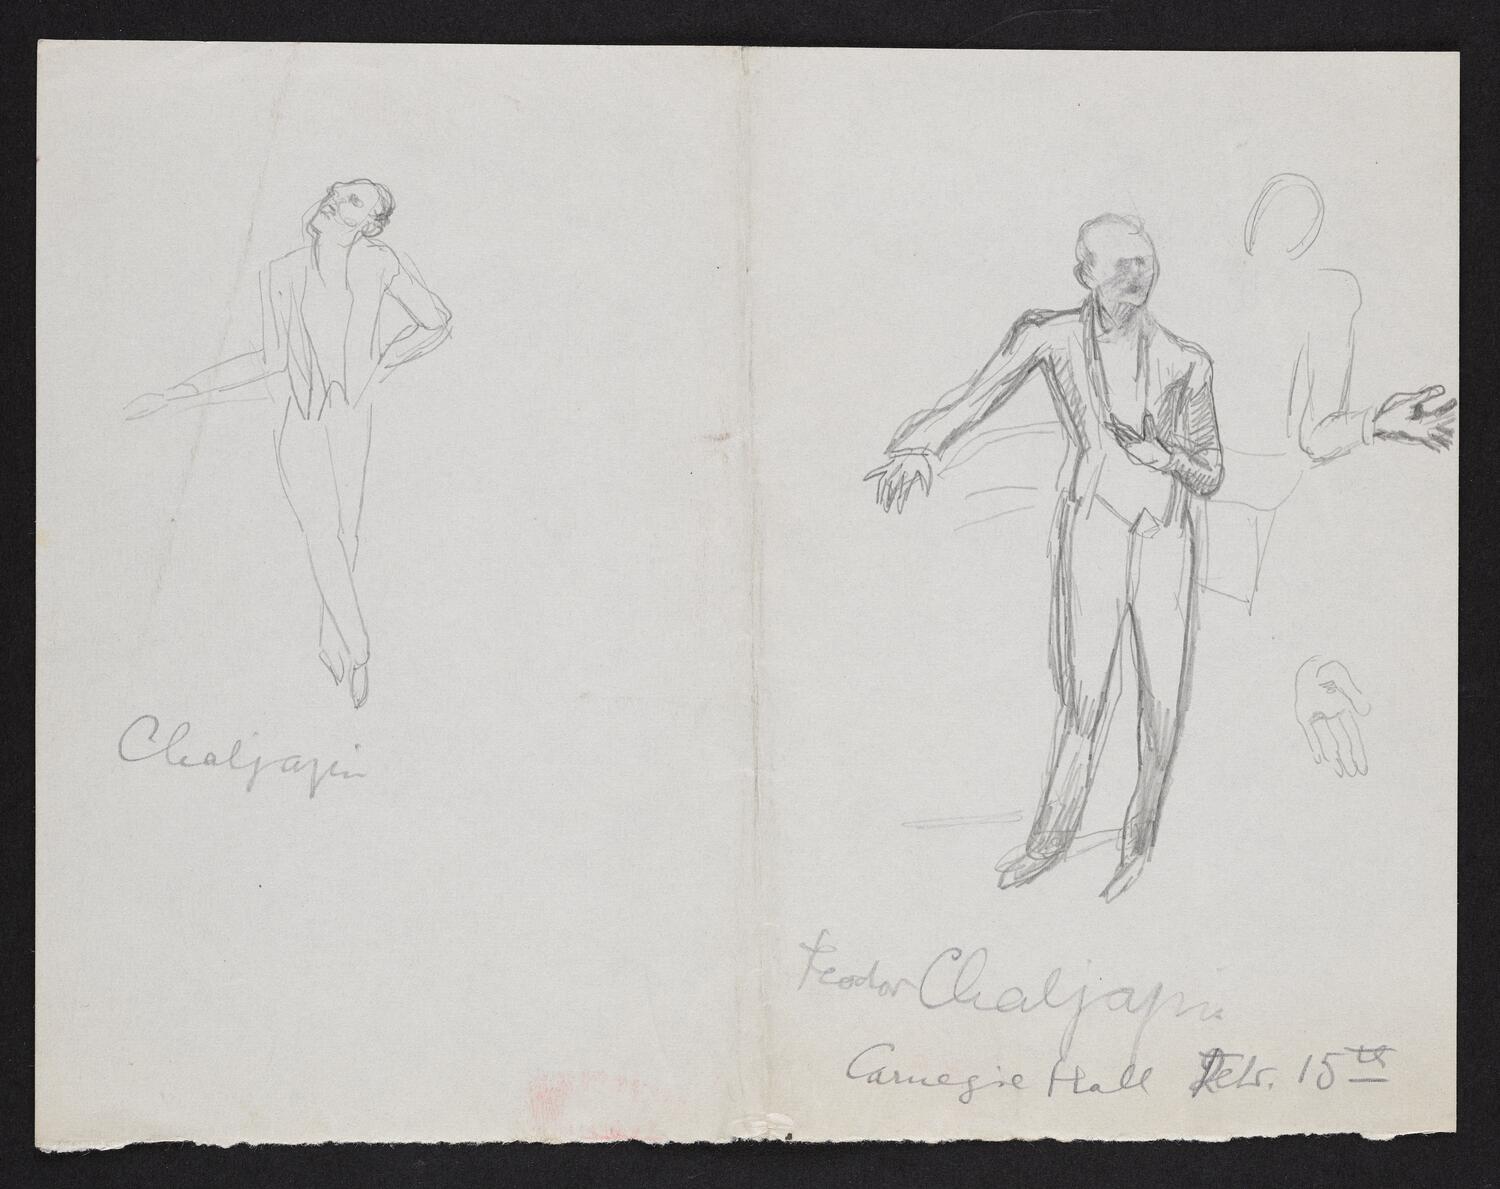 Chaljapin
Feodor Chaljapin
Carnegie Hall Febr. 15th